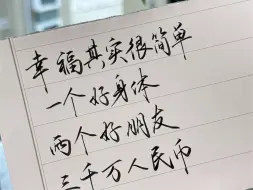 幸福其实很简单
一个好身体
两个好朋友
三千万人民币